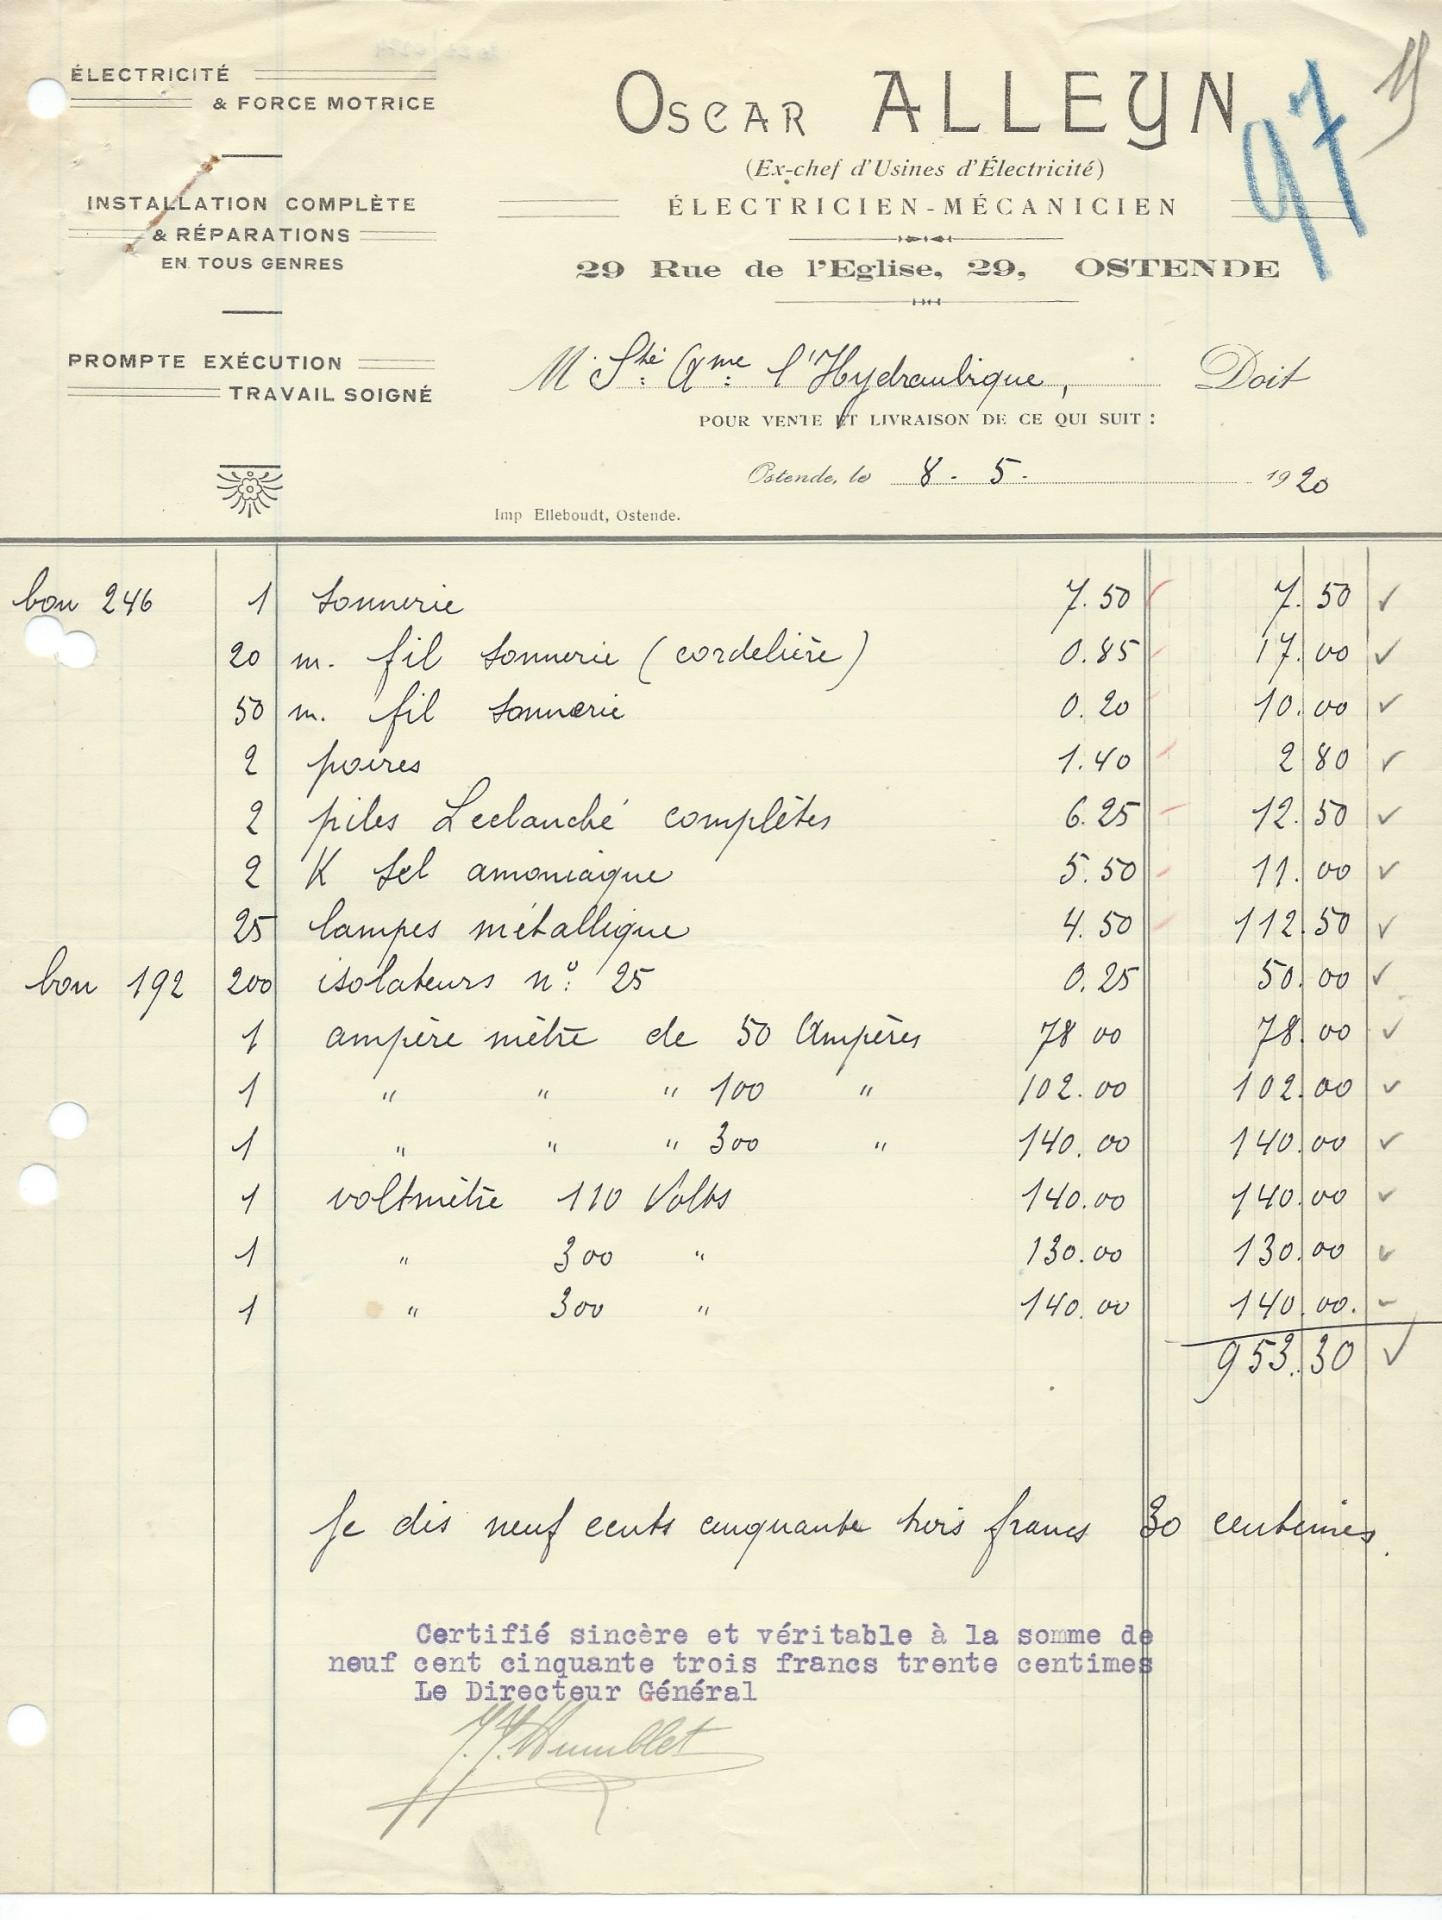 ÉLECTRICITÉ
& FORCE MOTRICE
INSTALLATION COMPLÈTE
& RÉPARATIONS
EN TOUS GENRES
PROMPTE EXÉCUTION
TRAVAIL SOIGNÉ
OSCAR ALLEYN
97
(Ex-chef d'Usines d'Électricité)
ÉLECTRICIEN-MÉCANICIEN
29 Rue de l'Eglise, 29, OSTENDE
M Sté Ame l'Hydraulique, Doit
POUR VENTE ET LIVRAISON DE CE QUI SUIT :
Ostende, le 8. 5. 1920
Imp Elleboudt, Ostende.
bon 246 1 sonnerie 7.50 7.50
20 m. fil sonnerie (cordelière) 0.85 17.00
50 m. fil sonnerie 0.20 10.00
2 poires 1.40 2 80
2 piles Leclanché complètes 6.25 12.50
2 K sel amoniaque 5.50 11.00
25 lampes métallique 4.50 112.50
bon 192 200 isolateurs n° 25 0.25 50.00
1 ampère mètre de 50 Ampères 78 00 78.00
1 " " " 100 " 102.00 102.00
1 " " " 300 " 140.00 140.00
1 voltmètre 110 Volts 140.00 140.00
1 " 300 " 130.00 130.00
1 " 300 " 140.00 140.00.
953.30
Je dis neuf cents cinquante trois francs 30 centimes.
Certifié sincère et véritable à la somme de
neuf cent cinquante trois francs trente centimes
Le Directeur Général
J. J. Humblet